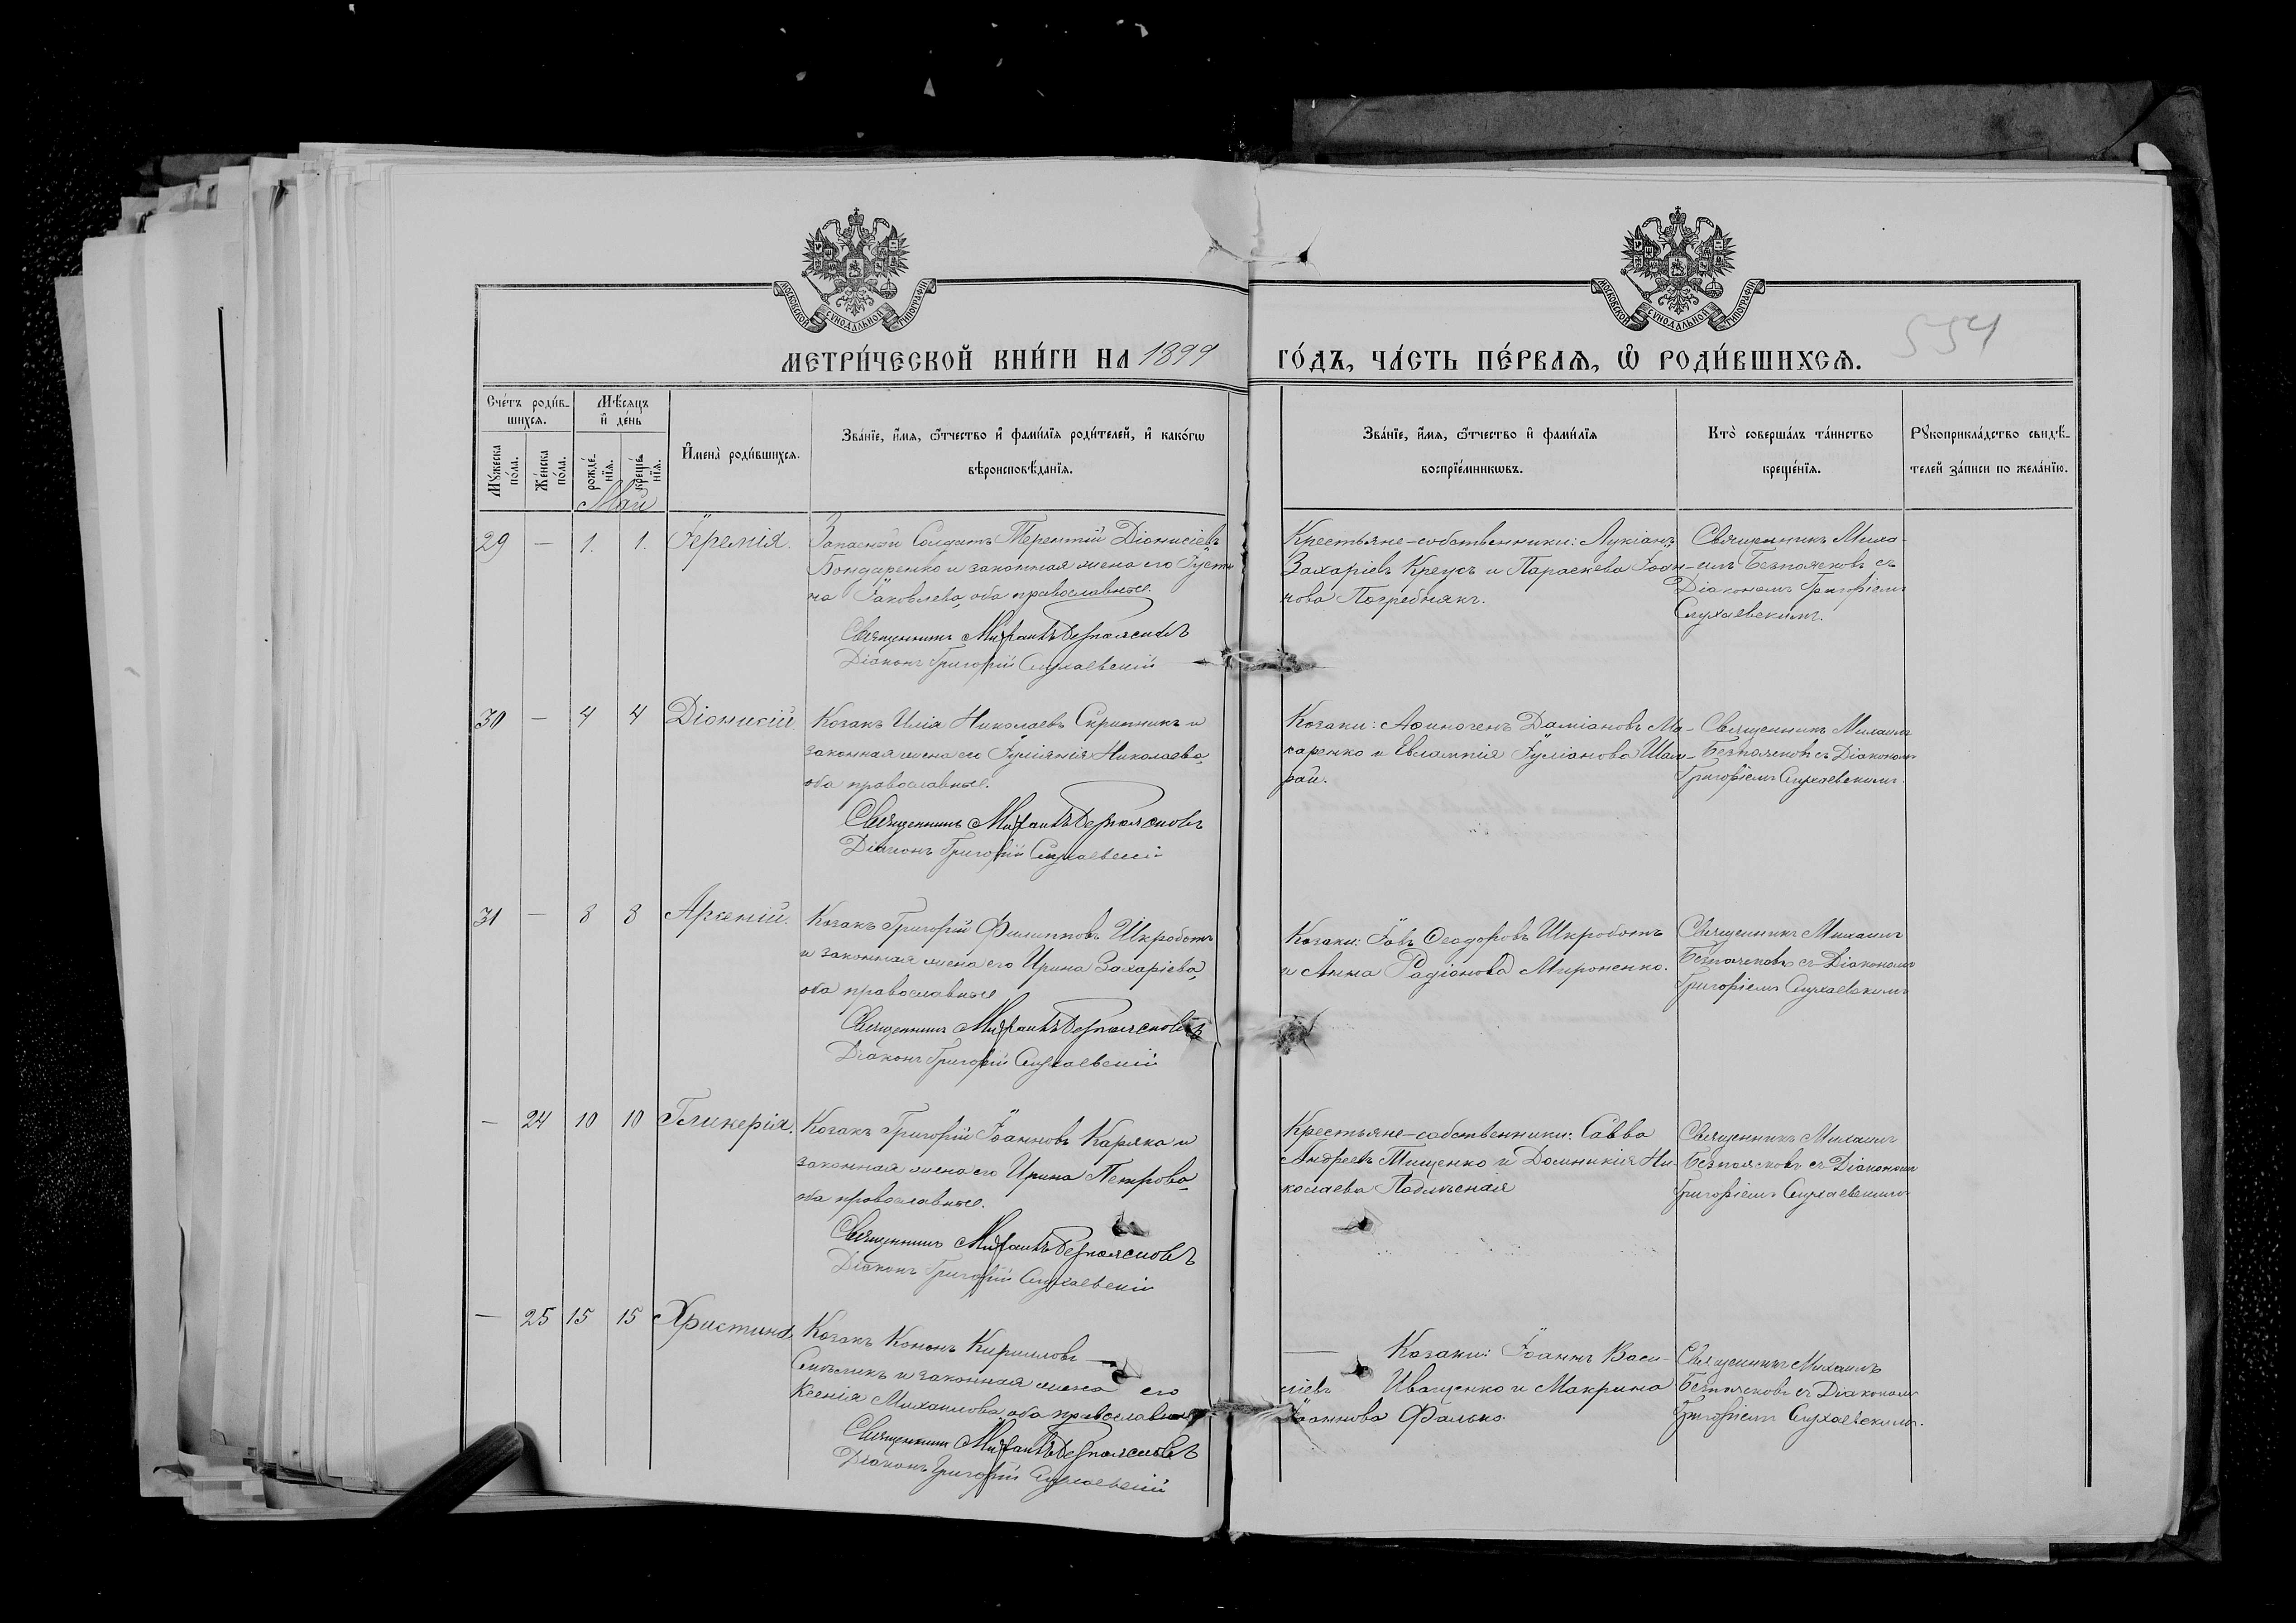 МОСКОВСКОЙ СѴНОДАЛЬНОЙ ТИПОГРАФІИ
МОСКОВСКОЙ СѴНОДАЛЬНОЙ ТИПОГРАФІИ
554
МЕТРИ́ЧЕСКОЙ КНИ́ГИ НА 1899 ГО́ДЪ, ЧА́СТЬ ПЕ́РВАѦ, Ѡ҆ РОДИ́ВШИХСѦ.
Сче́тъ роди́в-
шихсѧ.
Мꙋжеска по́ла.
Же́нска по́ла.
Мѣ́сѧцъ
и҆ де́нь
рожде́-нїѧ.
креще́-нїѧ.
И҆мена̀ роди́вшихсѧ.
Зва́нїе, и҆́мѧ, ѻ҆́тчество и҆ фами́лїѧ роди́телей, и҆ како́гѡ
вѣроисповѣ́данїѧ.
Зва́нїе, и҆́мѧ, ѻ҆́тчество и҆ фами́лїѧ
воспрїе́мникѡвъ.
Кто̀ соверша́лъ та́инство
креще́нїѧ.
Рꙋкоприкла́дство свидѣ́-
телей за́писи по жела́нїю.
Май
29 — 1. 1. Іеремія.
Запасный Солдатъ Терентій Діонисіевъ
Бондаренко и законная жена его Іусти-
на Іаковлева, оба православные.
Священникъ Михаилъ Безпоясковъ
Діаконъ Григорій Слухаевскій
Крестьяне-собственники: Лукіанъ
Захаріевъ Креусъ и Параскева Іоан-
нова Погребнякъ.
Священникъ Миха-
илъ Безпоясковъ съ
Діакономъ Григоріемъ
Слухаевскимъ.
30 — 4 4 Діонисій.
Козакъ Илія Николаевъ Скрипникъ и
законная жена его Іуліанія Николаева,
оба православные.
Священникъ Михаилъ Безпоясковъ
Діаконъ Григорій Слухаевскій
Козаки: Аѳиногенъ Даміановъ Ма-
каренко и Евлампія Іуліанова Шам-
рай.
Священникъ Михаилъ
Безпоясковъ съ Діакономъ
Григоріемъ Слухаевскимъ.
31 — 8 8 Арсеній.
Козакъ Григорій Филипповъ Шкроботъ
и законная жена его Ирина Захаріева,
оба православные
Священникъ Михаилъ Безпоясковъ
Діаконъ Григорій Слухаевскій
Козаки: Іовъ Ѳеодоровъ Шкроботъ
и Анна Радіонова Мироненко.
Священникъ Михаилъ
Безпоясковъ съ Діакономъ
Григоріемъ Слухаевскимъ
— 24 10 10 Гликерія.
Козакъ Григорій Іоанновъ Каряка и
законная жена его Ирина Петрова,
оба православные.
Священникъ Михаилъ Безпоясковъ
Діаконъ Григорій Слухаевскій
Крестьяне-собственники: Савва
Андреевъ Тищенко и Домникія Ни-
колаева Подлѣсная
Священникъ Михаилъ
Безпоясковъ съ Діакономъ
Григоріемъ Слухаевскимъ
— 25 15 15 Христина
Козакъ Кононъ Кирилловъ —
и законная жена его
Ксенія Михаилова, оба православные
Священникъ Михаилъ Безпоясковъ
Діаконъ Григорій Слухаевскій
— Козаки: Іоаннъ Васи-
ліевъ Иващенко и Макрина
Іоаннова Фалько.
Священникъ Михаилъ
Безпоясковъ съ Діакономъ
Григоріемъ Слухаевскимъ.